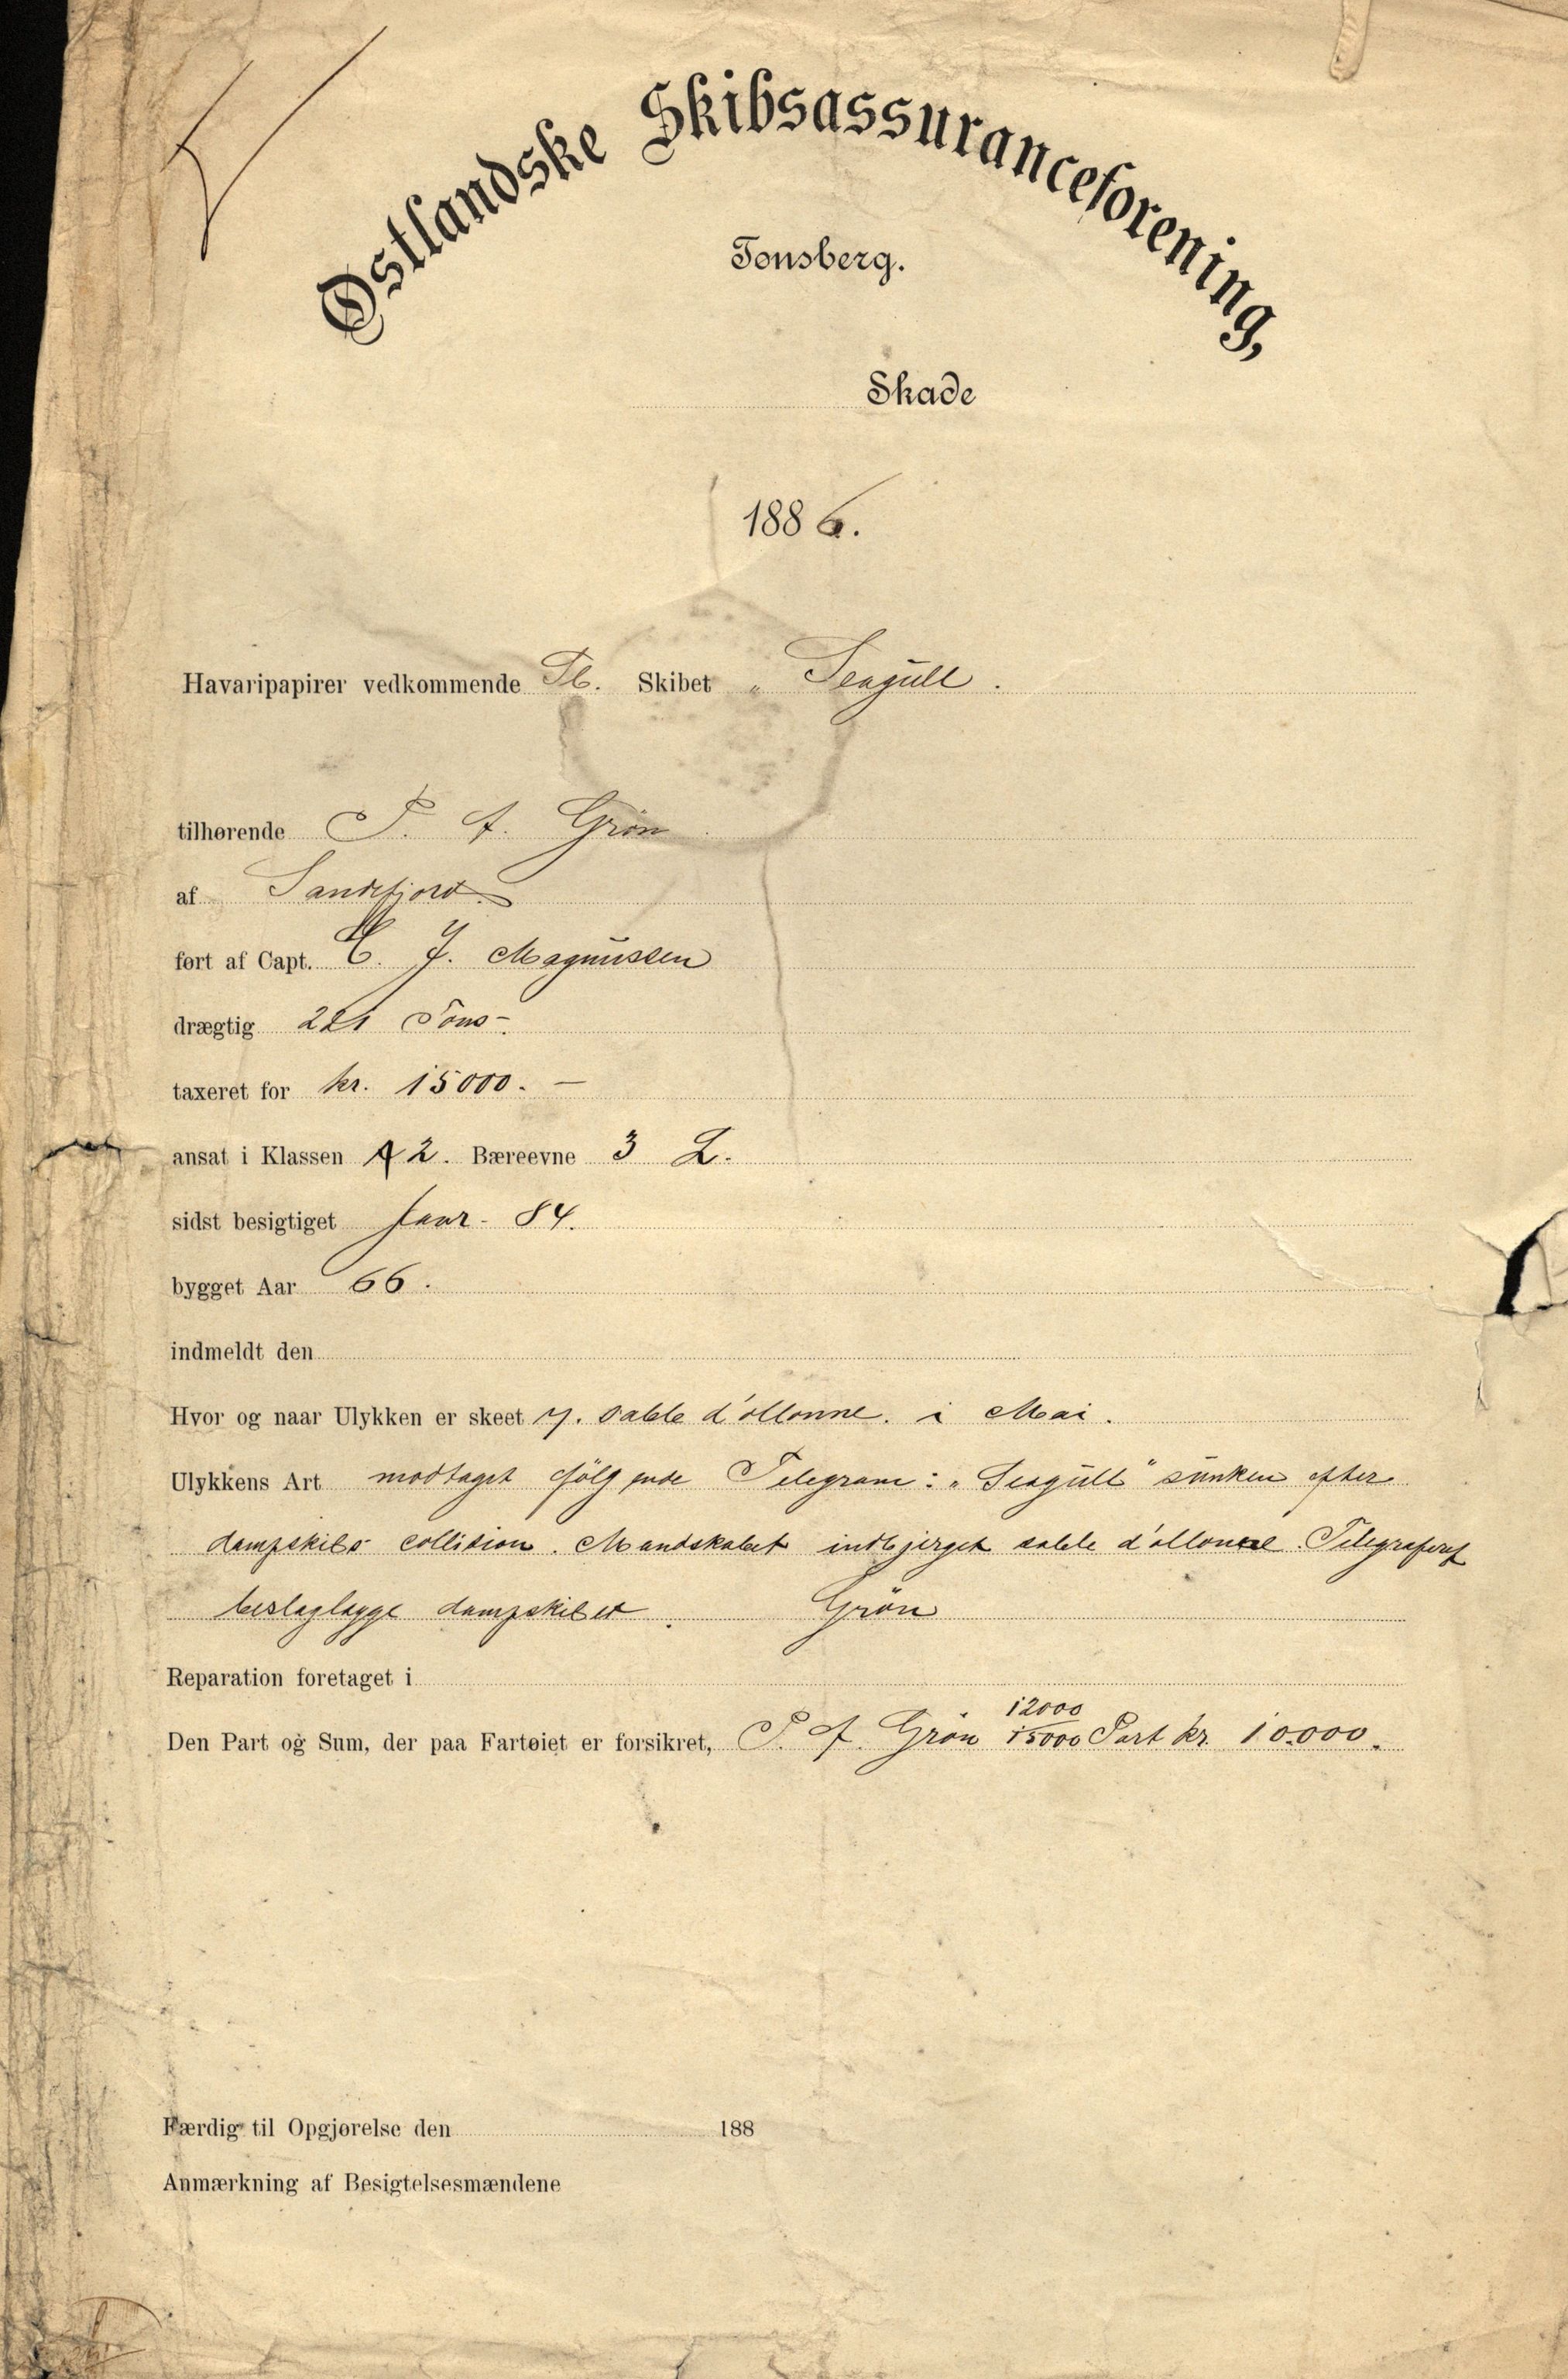 Østlandske Skibsassuranceforening,
Tønsberg.
Skade
1886.
Havaripapirer vedkommende Skibet „ Seagull .
tilhørende P. A. Grøn .
af Sandefjord.
ført af Capt. C. J. Magnussen
drægtig 221 Tons.
taxeret for kr. 15000. —
ansat i Klassen A 2. Bæreevne 3 L.
sidst besigtiget Januar - 84.
bygget Aar 66 .
indmeldt den
Hvor og naar Ulykken er skeet v. sable d'ollonne. i Mai .
Ulykkens Art modtaget følgende Telegram: „Seagull" sunken efter
dampskibs collision. Mandskabet indbjerget sable d'ollonne. Telegraferet
beslaglægge dampskibet . Grøn
Reparation foretaget i
Den Part og Sum, der paa Fartøiet er forsikret, P. A. Grøn 12000/15000 Part kr. 10.000.
Færdig til Opgjørelse den 188
Anmærkning af Besigtelsesmændene